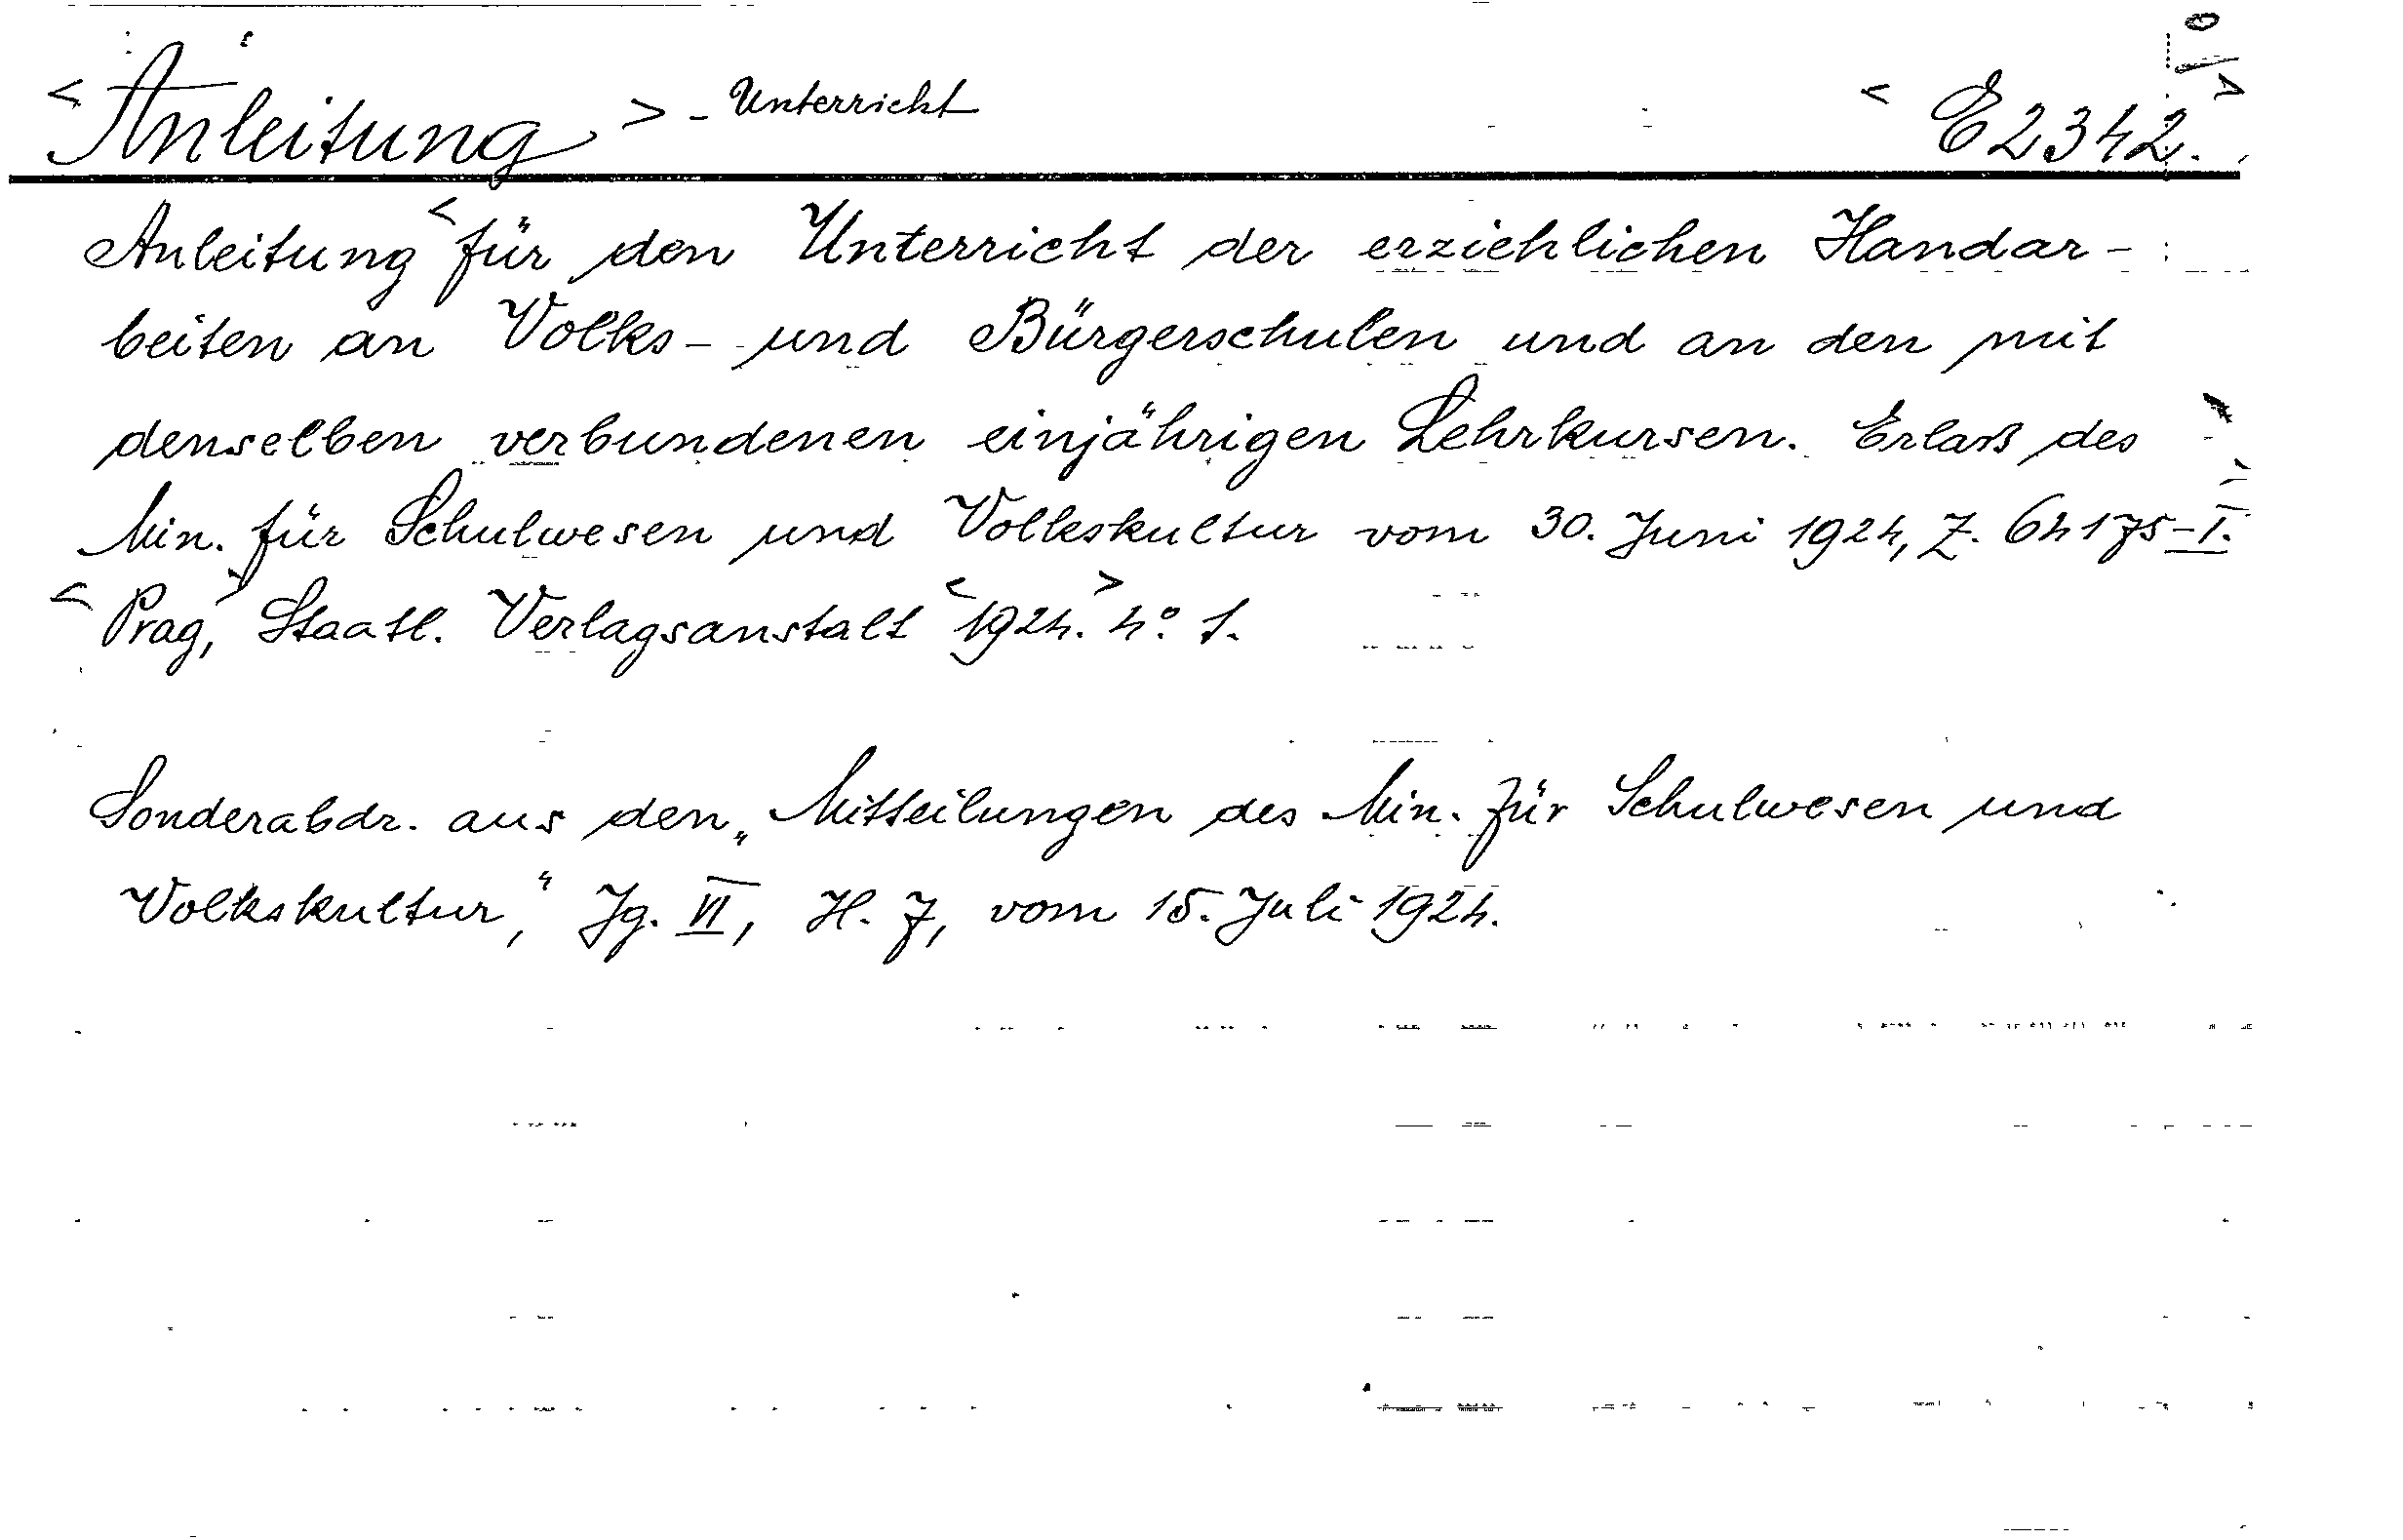 <Anleitung> - Unterricht <E2342.>
Anleitung <für den Unterricht der erziehlichen Handar-
beiten an Volks- und Bürgerschulen und an den mit
denselben verbundenen einjährigen Lehrkursen. Erlaß des
Min. für Schulwesen und Volkskultur vom 30. Juni 1924, Z. 64175-I.>
<Prag>, Staatl. Verlagsanstalt <1924.> 4°. 1.
Sonderabdr. aus den „Mitteilungen des Min. für Schulwesen und
Volkskultur,“ Jg. VI, H. 7, vom 15. Juli 1924.